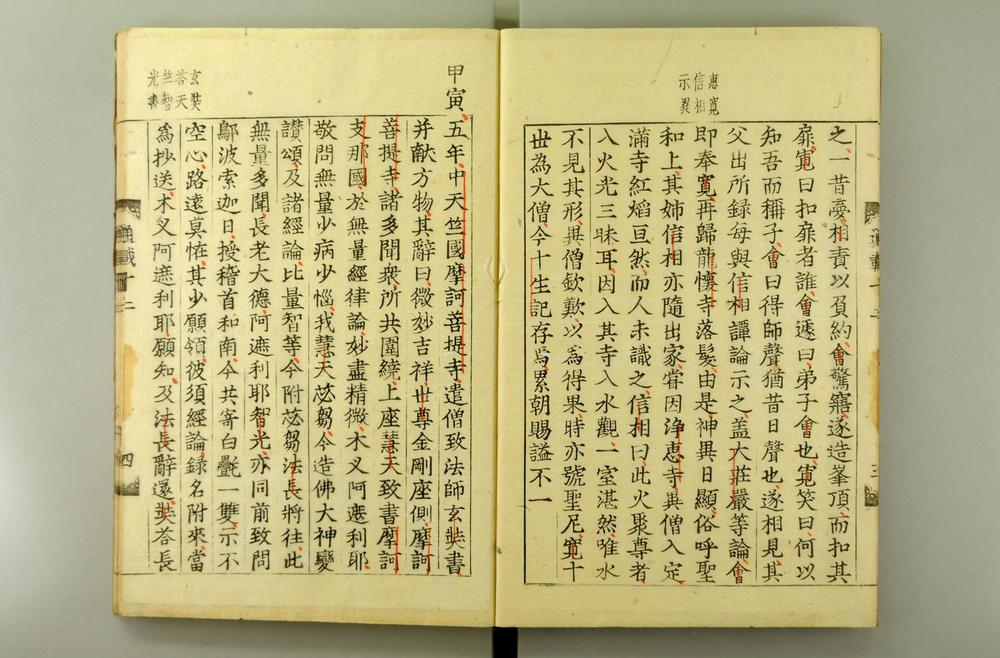 惠寬
信相
示異
之一昔㝱相責以負約會驚寤遂造峯頂而扣其
扉寬曰扣扉者誰會遽曰弟子會也寬笑曰何以
知吾而稱子會曰得師聲猶昔日聲也遂相見其
父出所録每與信相譚論示之盖大莊嚴等論會
即奉寬再歸龍懷寺落髮由是神異日顯俗呼聖
和上其姉信相亦隨出家甞因浄惠寺異僧入定
滿寺紅熖亘然而人未識之信相曰此火聚尊者
入火光三昧耳因入其寺入水觀一室湛然唯水
不見其形異僧欽歎以為得果時亦號聖尼寬十
世為大僧今十生記存焉累朝賜謚不一
甲寅
玄奘
荅天
竺智
光書
五年中天竺國摩訶菩提寺遣僧致法師玄奘書
并獻方物其辭曰微妙吉祥世尊金剛座側摩訶
菩提寺諸多聞衆所共圍繞上座慧天致書摩訶
支那國於無量經律論妙盡精微木叉阿遮利耶
敬問無量少病少惱我慧天苾芻今造佛大神變
讃頌及諸經論比量智等今附苾芻法長將往此
無量多聞長老大德阿遮利耶智光亦同前致問
鄔波索迦日授稽首和南今共寄白㲲一雙示不
空心路遠莫恠其少願領彼須經論録名附來當
為抄送木叉阿遮利耶願知及法長辭還奘荅長
通載十二
四